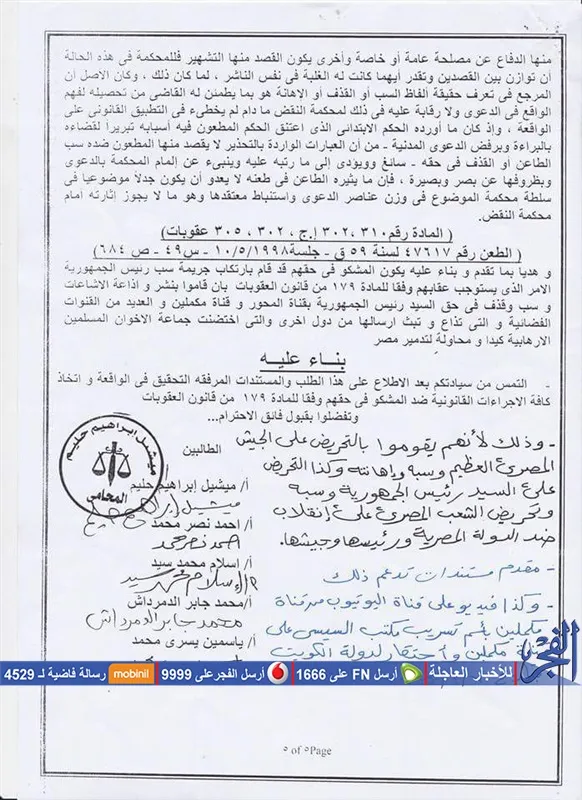 منها الدفاع عن مصلحة عامة أو خاصة وأخرى يكون القصد منها التشهير فللمحكمة فى هذه الحالة
أن توازن بين القصدين وتقدر أيهما كانت له الغلبة فى نفس الناشر ، لما كان ذلك ، وكان الأصل أن
المرجع فى تعرف حقيقة ألفاظ السب أو القذف أو الاهانة هو بما يطمئن له القاضى من تحصيله لفهم
الواقع فى الدعوى ولا رقابة عليه فى ذلك لمحكمة النقض ما دام لم يخطىء فى التطبيق القانونى على
الواقعة ، وإذ كان ما أورده الحكم الابتدائى الذى اعتنق الحكم المطعون فيه أسبابه تبريرا لقضاءه
بالبراءة وبرفض الدعوى المدنية - من أن العبارات الواردة بالتحذير لا يقصد منها المطعون ضده سب
الطاعن أو القذف فى حقه - سائغ وويؤدى إلى ما رتبه عليه وينبىء عن إلمام المحكمة بالدعوى
وبظروفها عن بصر وبصيرة ، فإن ما يثيره الطاعن فى طعنه لا يعدو أن يكون جدلاً موضوعيا فى
سلطة محكمة الموضوع فى وزن عناصر الدعوى واستنباط معتقدها وهو ما لا يجوز إثارته أمام
محكمة النقض.
( المادة رقم ٣١٠، ٣٠٢ أ.ج ، ٣٠٢ ، ٣٠٥ عقوبات )
( الطعن رقم ٤٧٦١٧ لسنة ٥٩ ق - جلسة ١٠/٥/١٩٩٨ - س٤٩ - ص ٦٨٤ )
و هديا بما تقدم و بناء عليه يكون المشكو في حقهم قد قام بارتكاب جريمة سب رئيس الجمهورية
الامر الذى يستوجب عقابهم وفقا للمادة ١٧٩ من قانون العقوبات بان قاموا بنشر و اذاعة الاشاعات
و سب وقذف فى حق السيد رئيس الجمهورية بقناة المحور و قناة مكملين و العديد من القنوات
الفضائية و التى تذاع و تبث ارسالها من دول اخرى والتى اختضنت جماعة الاخوان المسلمين
الارهابية كيدا و محاولة لتدمير مصر
بناء عليه
- التمس من سيادتكم بعد الاطلاع على هذا الطلب والمستندات المرفقه التحقيق فى الواقعة و اتخاذ
كافة الاجراءات القانونية ضد المشكو فى حقهم وفقا للمادة ١٧٩ من قانون العقوبات
وتفضلوا بقبول فائق الاحترام...
- وذلك لأنهم يقوموا بالتحريض على الجيش
المصرى العظيم وسبه وإهانته وكذا التحريض
على السيد رئيس الجمهورية وسبه
وتحريض الشعب المصرى على إنقلاب
ضد الدولة المصرية ورئيسها وجيشها.
- مقدم مستندات تدعم ذلك
- وكذا فيديو على قناة اليوتيوب من قناة
مكملين بأسم تسريب مكتب السيسى على
قناة مكملين وأحتقار لدولة الكويت
الطالبين
أ/ ميشيل إبراهيم حليم
ميشيل إبراهيم حليم
أ/ احمد نصر محمد
احمد نصر محمد
أ/ إسلام محمد سيد
إسلام محمد سيد
أ/محمد جابر الدمرداش
محمد جابر الدمرداش
أ/ ياسمين يسرى محمد
ميشيل ابراهيم حليم
المحامى
الفجر
للأخبار العاجلة
أرسل FN على 1666
أرسل الفجر على 9999
mobinil
رسالة فاضية لـ 4529
٥ of ٥Page